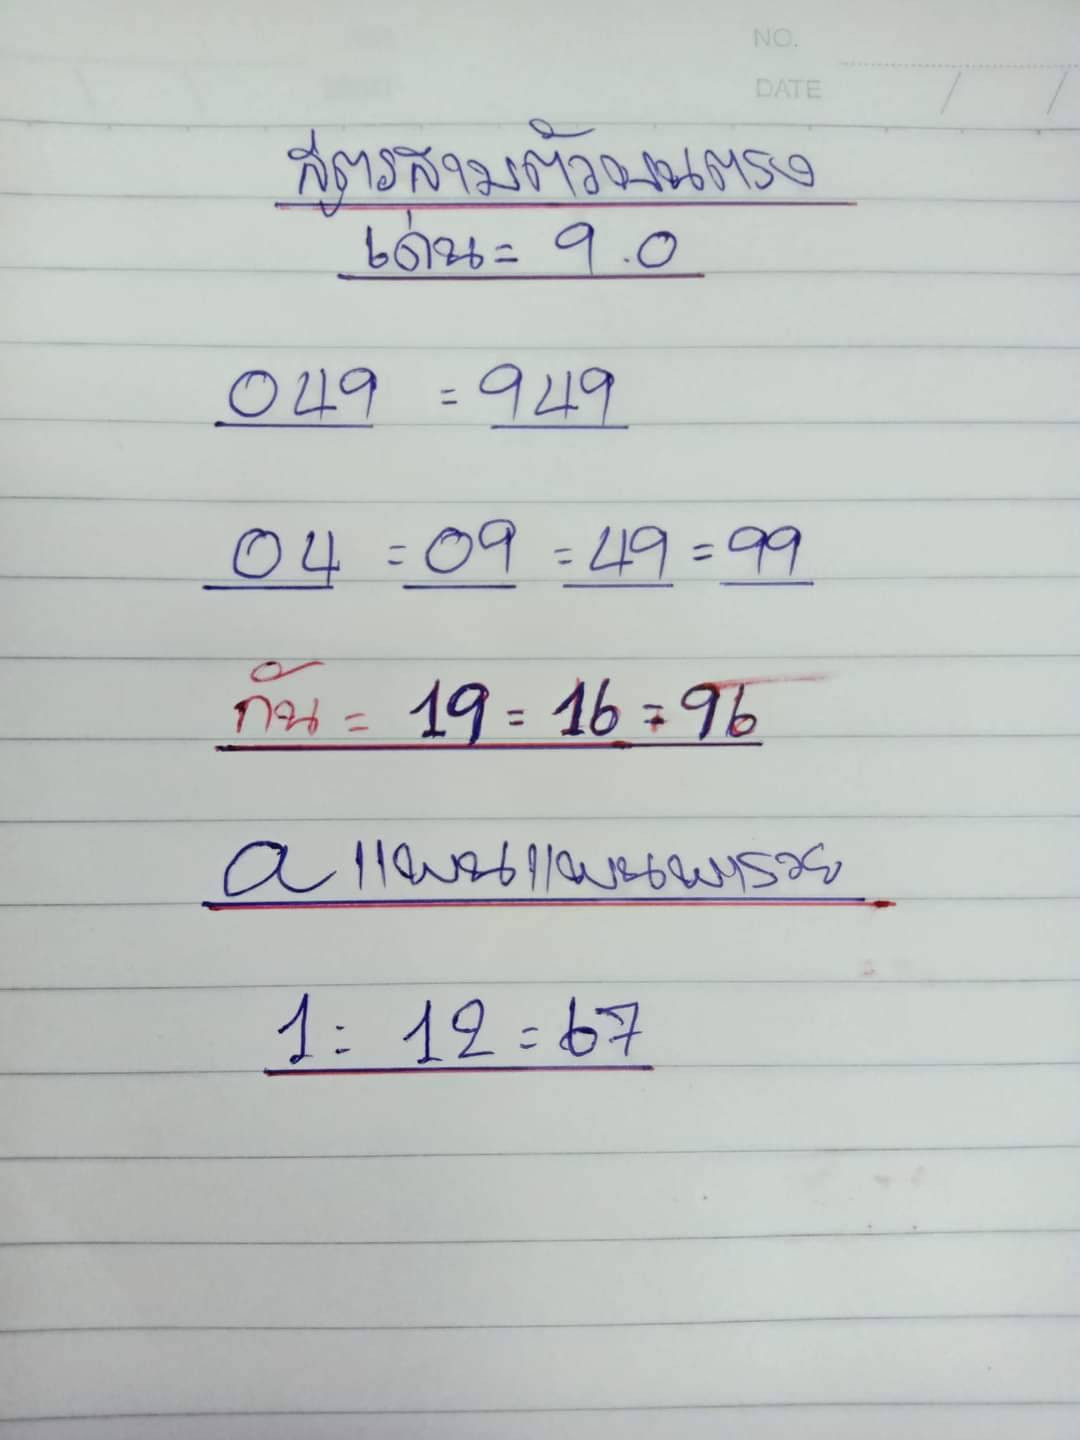 NO.
DATE / /
สูตรสามตัวบนตรง
เด่น = 9.0
049 = 949
04 = 09 = 49 = 99
กัน = 19 = 16 = 96
a แบนแบนพารวย
1 = 12 = 67